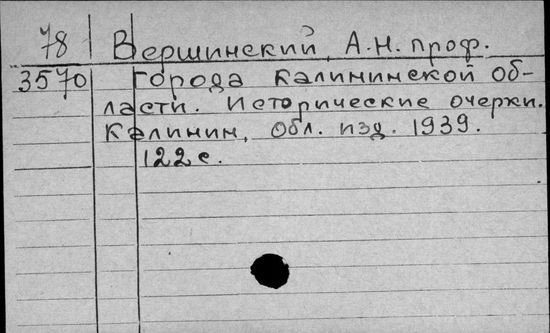 78 Вершинский, А.Н. проф.
3570 Города Калининской об-
ласти. Исторические очерки.
Калинин, Обл. изд. 1939.
122 с.